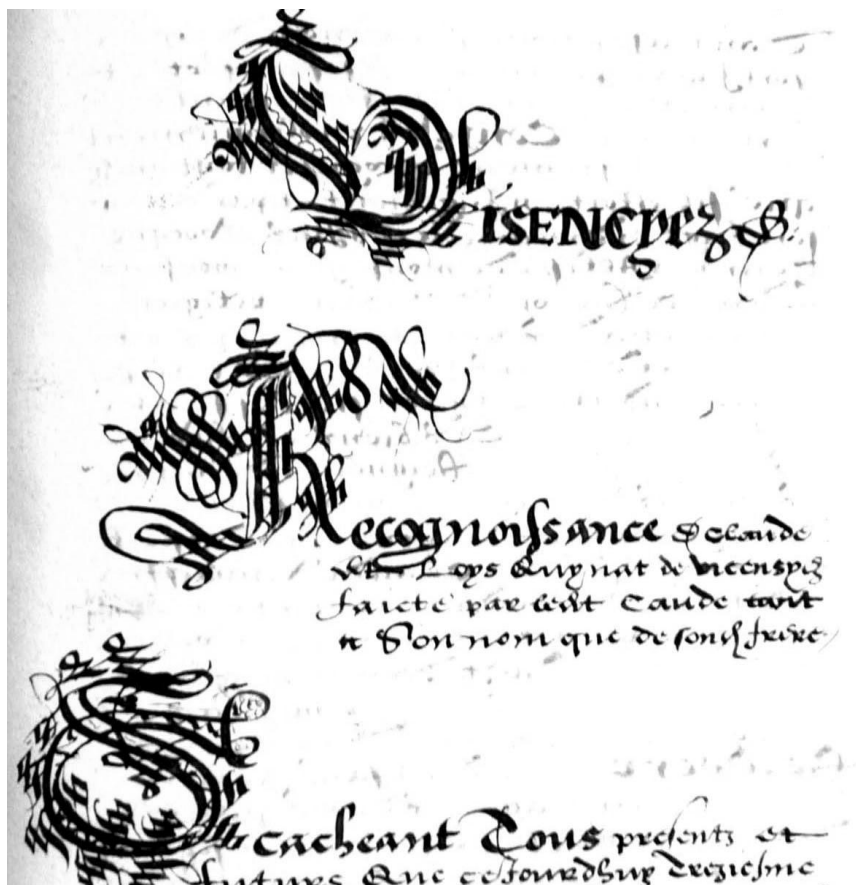 VISENCYEZ
Recognoissance Claude
et Loys Quynat de vicensyez
faicte par ledit Caude tant
a Son nom que de sond frere
Scacheant Tous presentz et
futurs Que cejourdhuy treziesme